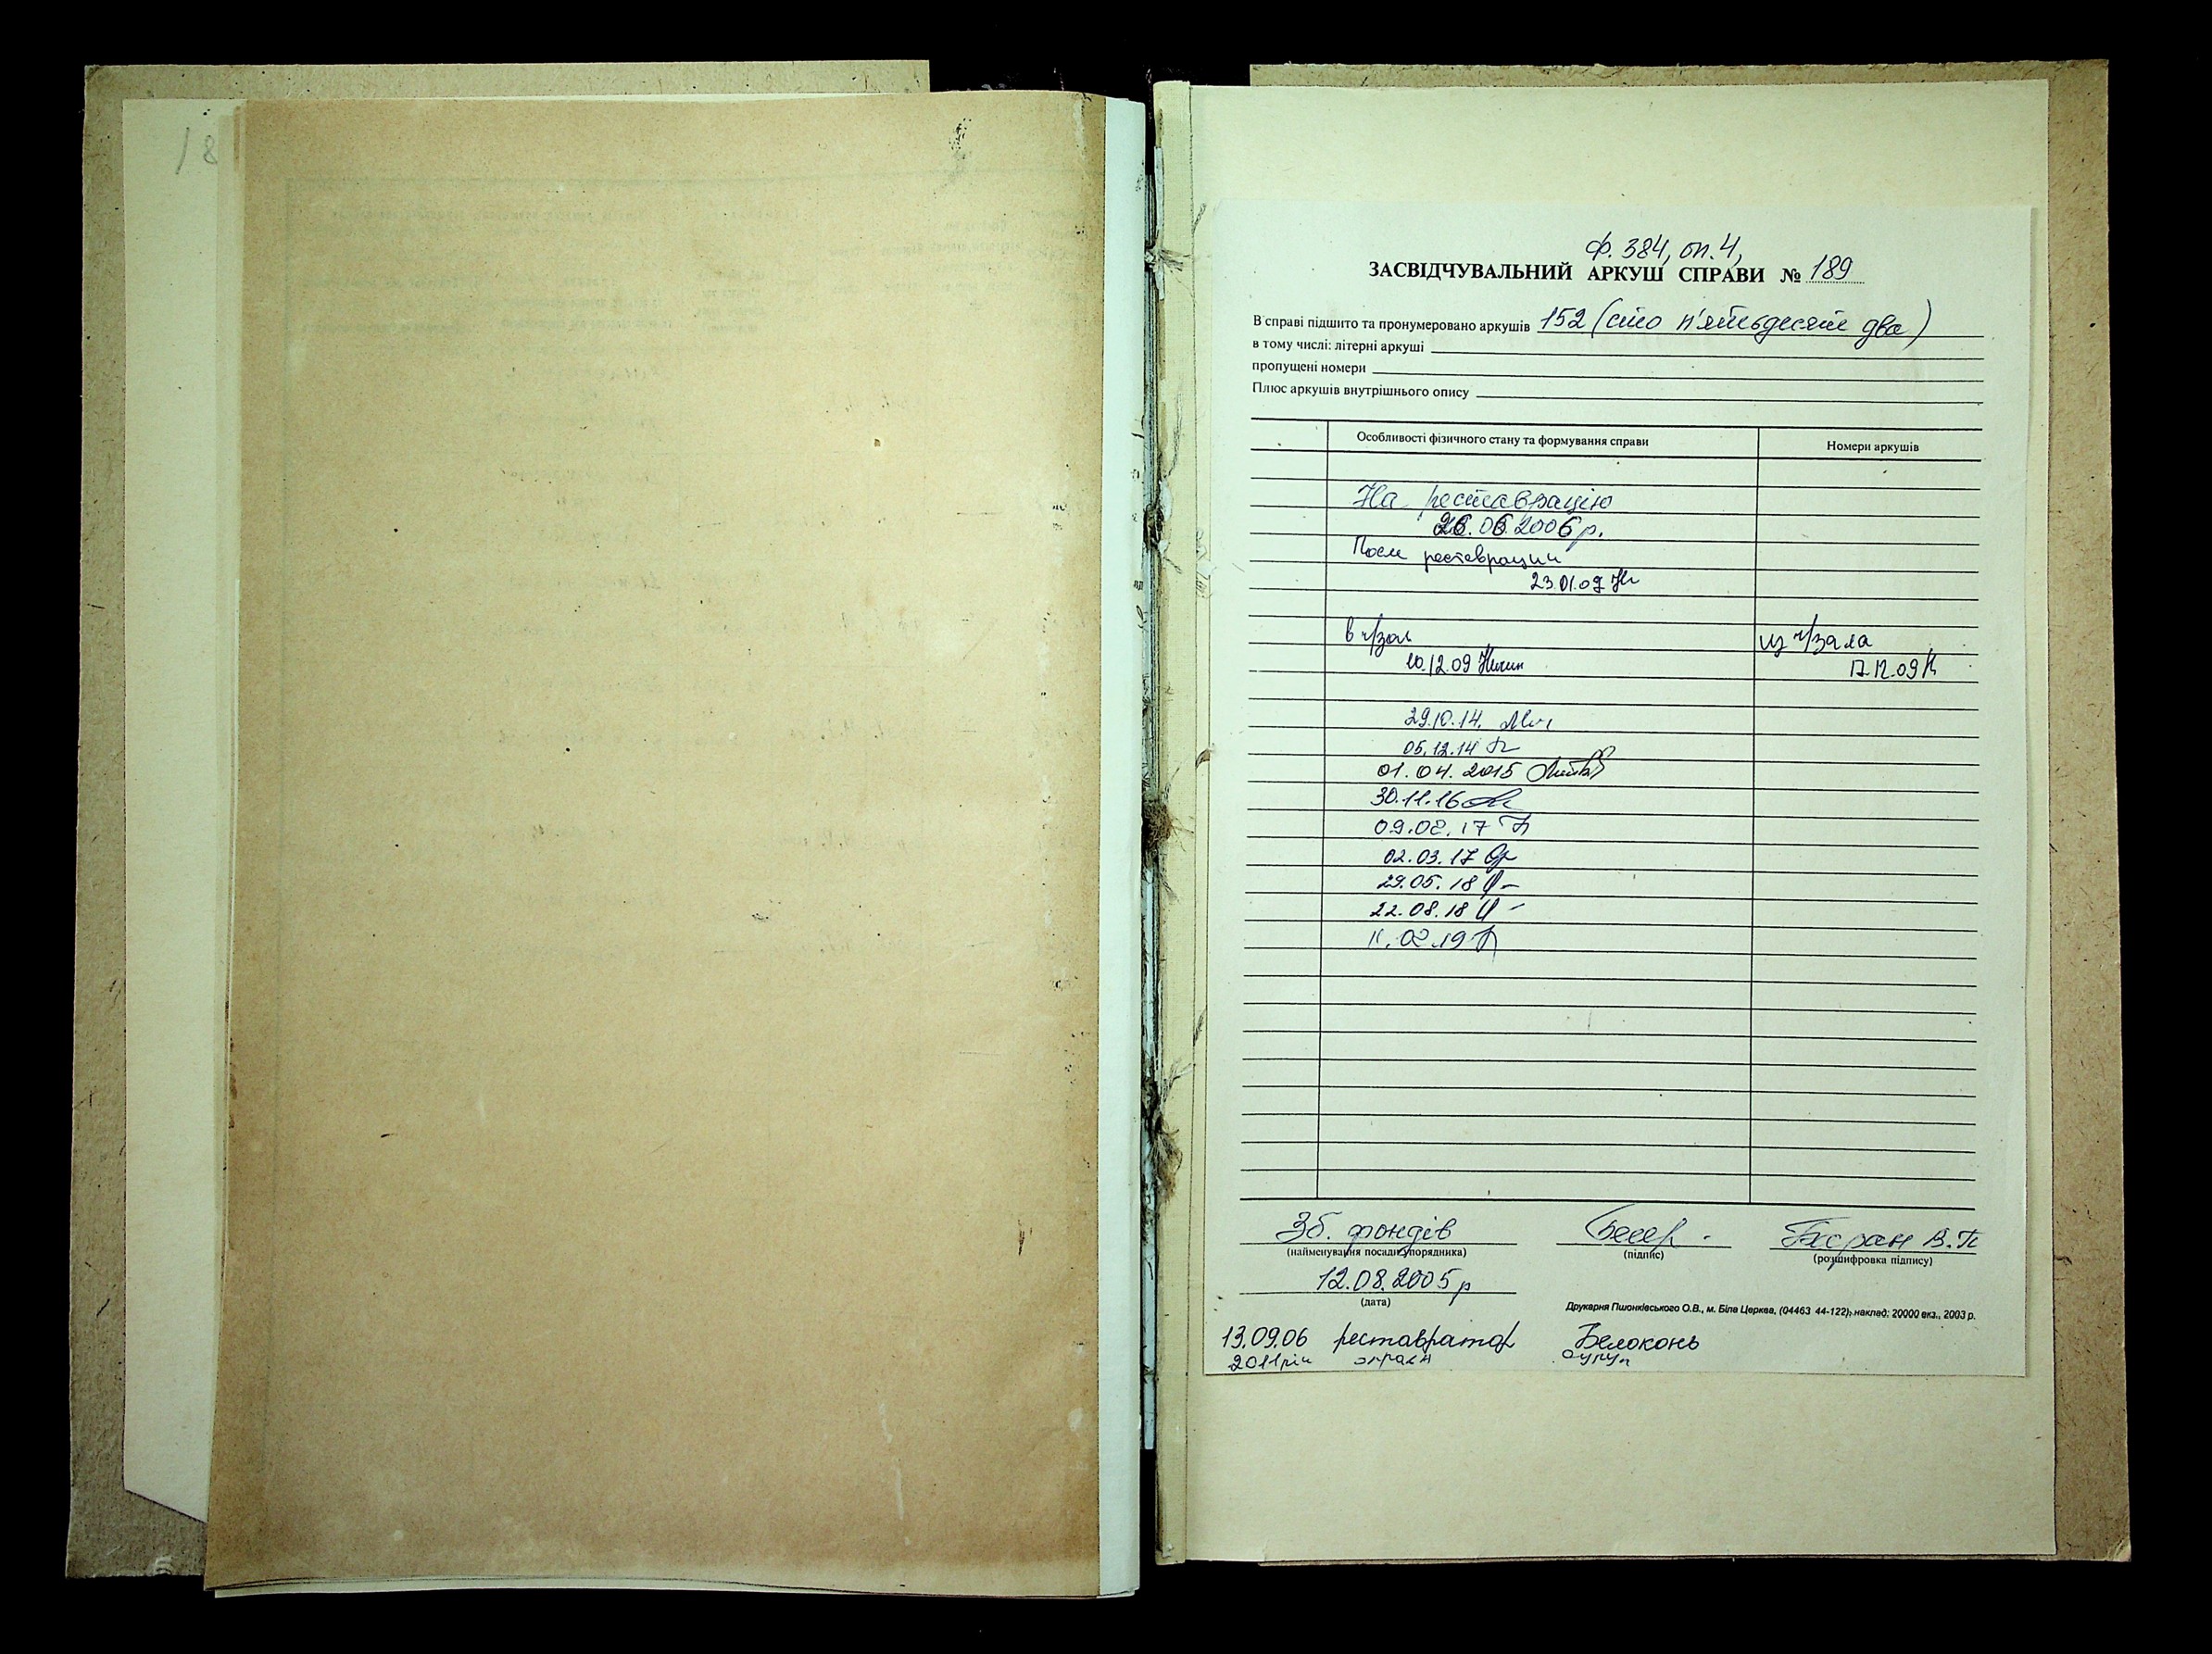 18
ф. 384, оп. 4,
ЗАСВІДЧУВАЛЬНИЙ АРКУШ СПРАВИ № 189
В справі підшито та пронумеровано аркушів 152 (сто п'ятьдесят два)
в тому числі: літерні аркуші
пропущені номери
Плюс аркушів внутрішнього опису
Особливості фізичного стану та формування справи Номери аркушів
На реставрацію
26.06.2006 р.
После реставрации
23.01.09
в ч/зал из ч/зала
10.12.09 17.12.09
29.10.14.
05.12.14
01.04.2015
30.11.16
09.02.17
02.03.17
29.05.18
22.08.18
11.02.19
Зб. фондів
(найменування посади упорядника) (підпис) (розшифровка підпису)
12.08.2005 р
(дата)
Друкарня Пшонківського О.В., м. Біла Церква, (04463 44-122); наклад: 20000 екз., 2003 р.
13.09.06 реставратор Белоконь
2011 рік